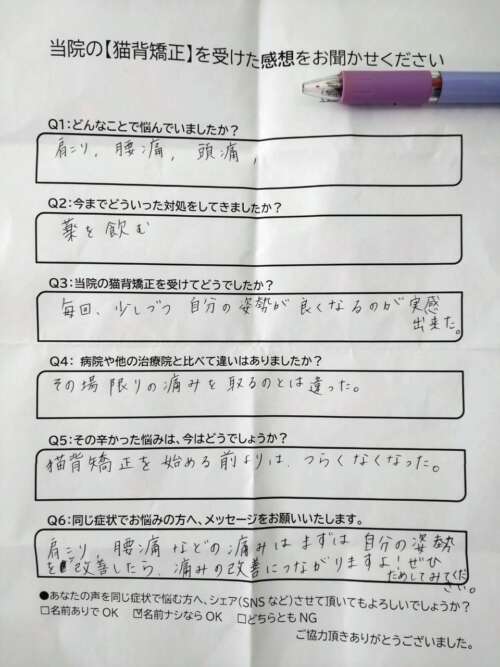 当院の【猫背矯正】を受けた感想をお聞かせください
Q1:どんなことで悩んでいましたか?
肩こり, 腰痛, 頭痛,
Q2:今までどういった対処をしてきましたか?
薬を飲む
Q3:当院の猫背矯正を受けてどうでしたか?
毎回、少しづつ 自分の姿勢が良くなるのが実感
出来た。
Q4: 病院や他の治療院と比べて違いはありましたか?
その場限りの痛みを取るのとは違った。
Q5:その辛かった悩みは、今はどうでしょうか?
猫背矯正を始める前よりは、つらくなくなった。
Q6:同じ症状でお悩みの方へ、メッセージをお願いいたします。
肩こり, 腰痛などの痛みはまずは自分の姿勢
を改善したら、痛みの改善につながりますよ!ぜひ
ためしてみてくだ
さい。
●あなたの声を同じ症状で悩む方へ、シェア(SNSなど)させて頂いてもよろしいでしょうか?
☐名前ありでOK ☑名前ナシならOK ☐どちらともNG
ご協力頂きありがとうございました。